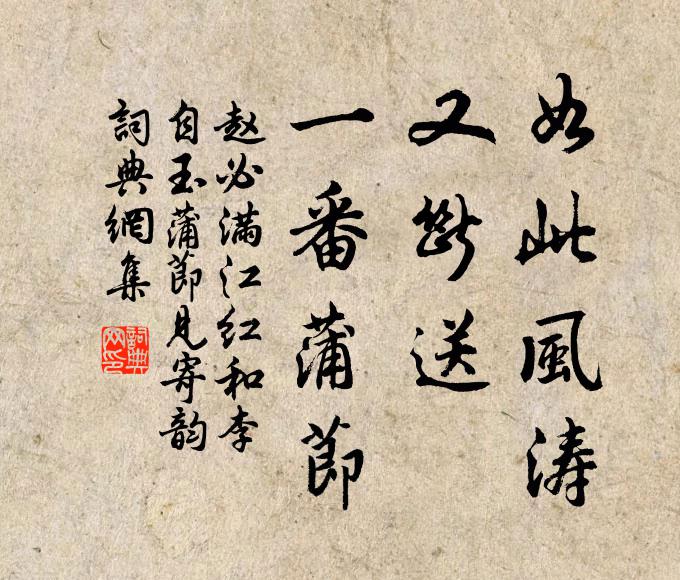 如此風涛
又断送
一番蒲節
赵必满江红和李
自玉蒲節見寄韵
詞典網集
詞典网印